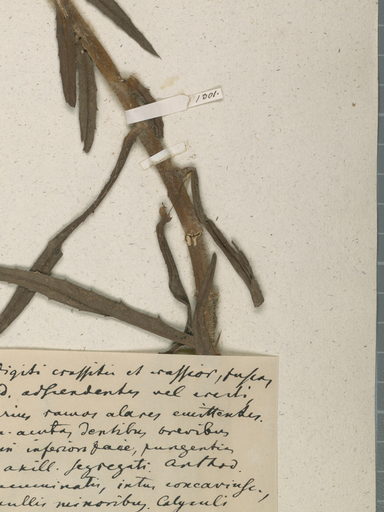 1201.
digiti crassitie et crassior, fuscas
D. adscendentes vel erecti,
rius ramos alares emittentes.
acuta, dentibus brevibus
in inferiori face, pungentia
axill. segregati. Anthod.
acuminatis, intus concaviusc.,
nullis minoribus. Calyculi